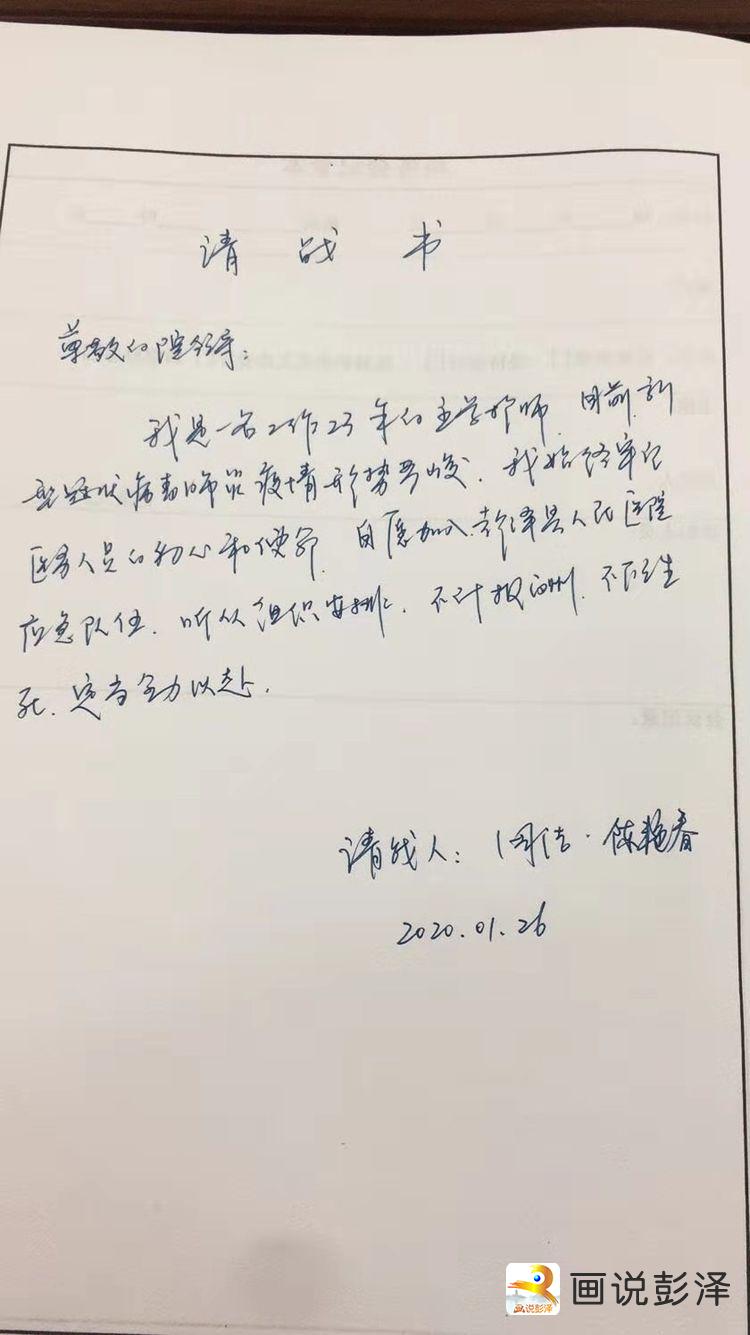 请战书
尊敬的院领导：
我是一名工作23年的主管护师，目前新
型冠状病毒肺炎疫情形势严峻，我始终牢记
医务人员的初心和使命，自愿加入彭泽县人民医院
应急队伍，听从组织安排，不计报酬，不顾生
死，定当全力以赴。
请战人： 陈艳春
2020.01.26
画说彭泽
画说彭泽